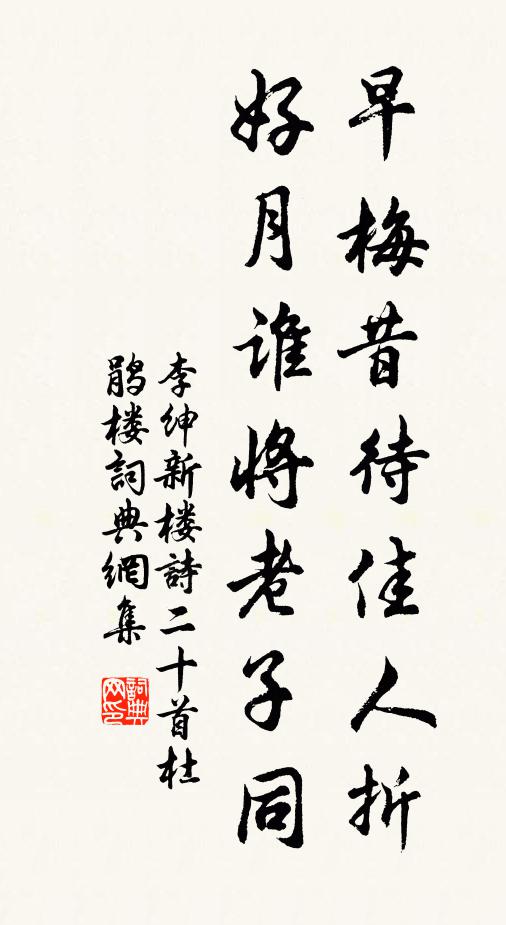 早梅昔待佳人折
好月谁將老子同
李绅新楼詩二十首杜
鹃楼詞典網集
詞典
网印